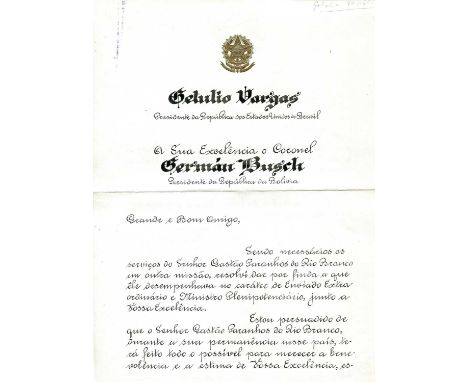 Getulio Vargas
Presidente da República dos Estados Unidos do Brasil
A Sua Excelência o Coronel
Germán Busch
Presidente da República da Bolívia
Grande e Bom Amigo,
Sendo necessários os
serviços do Senhor Gastão Paranhos do Rio Branco
em outra missão, resolvi dar por finda a que
êle desempenhava no caráter de Enviado Extra
ordinário e Ministro Plenipotenciário, junto a
Vossa Excelência.
Estou persuadido de
que o Senhor Gastão Paranhos do Rio Branco,
durante a sua permanência nesse país, te-
rá feito todo o possível para merecer a bene-
volência e a estima de Vossa Excelência, es-